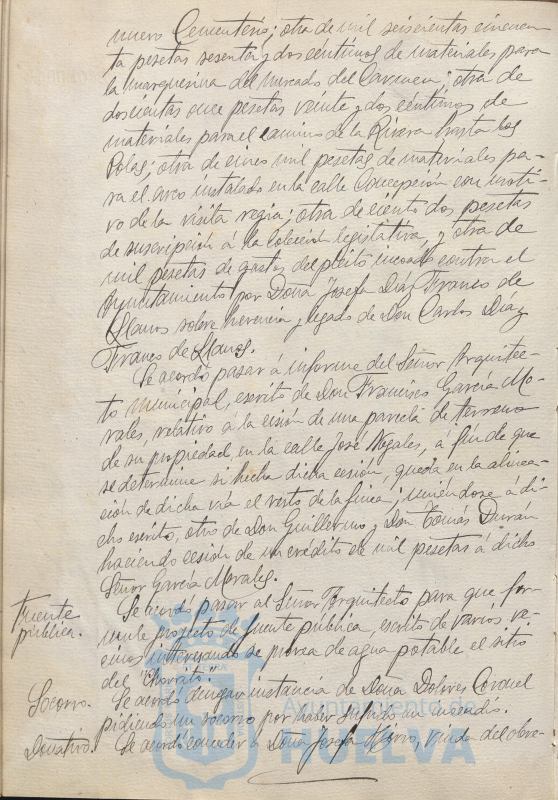 nuevo Cementerio; otra de mil seiscientas cincuen-
ta pesetas sesenta y dos centimos de materiales para
la marquesina del mercado del Carmen; otra de
doscientas once pesetas veinte y dos centimos de
materiales para el camino de la Rivera hasta las
Bolas; otra de cinco mil pesetas de materiales pa-
ra el arco instalado en la calle Concepción con moti-
vo de la visita regia; otra de ciento dos pesetas
de suscripción á la Colección legislativa, y otra de
mil pesetas de gastos del pleito incoado contra el
Ayuntamiento por Doña Josefa Diaz Franco de
Llanos sobre herencia y legado de Don Carlos Diaz
Franco de Llanos.
Se acordó pasar á informe del Señor Arquitec-
to municipal, escrito de Don Francisco García Mo-
rales, relativo á la cesión de una parcela de terreno
de su propiedad, en la calle José Nogales, á fin de que
se determine si hecha dicha cesión, queda en la alinea-
ción de dicha via el resto de la finca; uniéndose á di-
cho escrito, otro de Don Guillermo y Don Tomás Duran
haciendo cesión de un crédito de mil pesetas á dicho
Señor García Morales.
Fuente
pública.
Se acordó pasar al Señor Arquitecto para que for-
mule proyecto de fuente pública, escrito de varios ve-
cinos interesando se provea de agua potable el sitio
del "Chorrito".
Socorro.
Se acordó denegar instancia de Doña Dolores Coronel
pidiendo un socorro por haber sufrido un incendio.
Donativo.
Se acordó conceder á Doña Josefa viuda del obre-
Ayuntamiento de
HUELVA